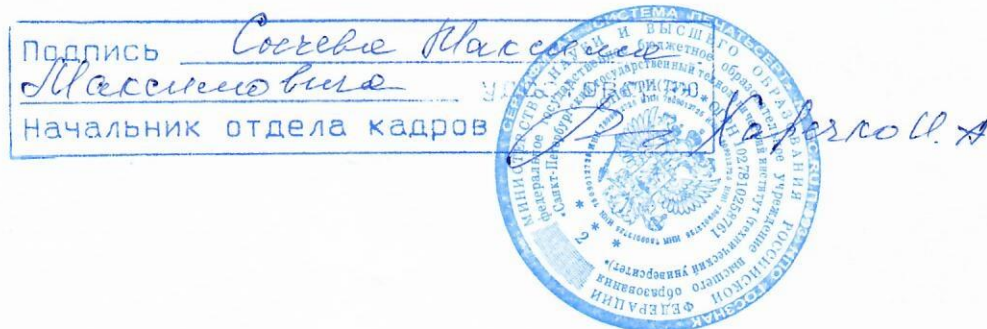 Подпись Сычева Максима
Максимовича удостоверяю
Начальник отдела кадров Харечко И.А
МИНИСТЕРСТВО НАУКИ И ВЫСШЕГО ОБРАЗОВАНИЯ РОССИЙСКОЙ ФЕДЕРАЦИИ
федеральное государственное бюджетное образовательное учреждение высшего образования
"Санкт-Петербургский государственный технологический институт (технический университет)"
ОГРН 1027810258761
* 2 *